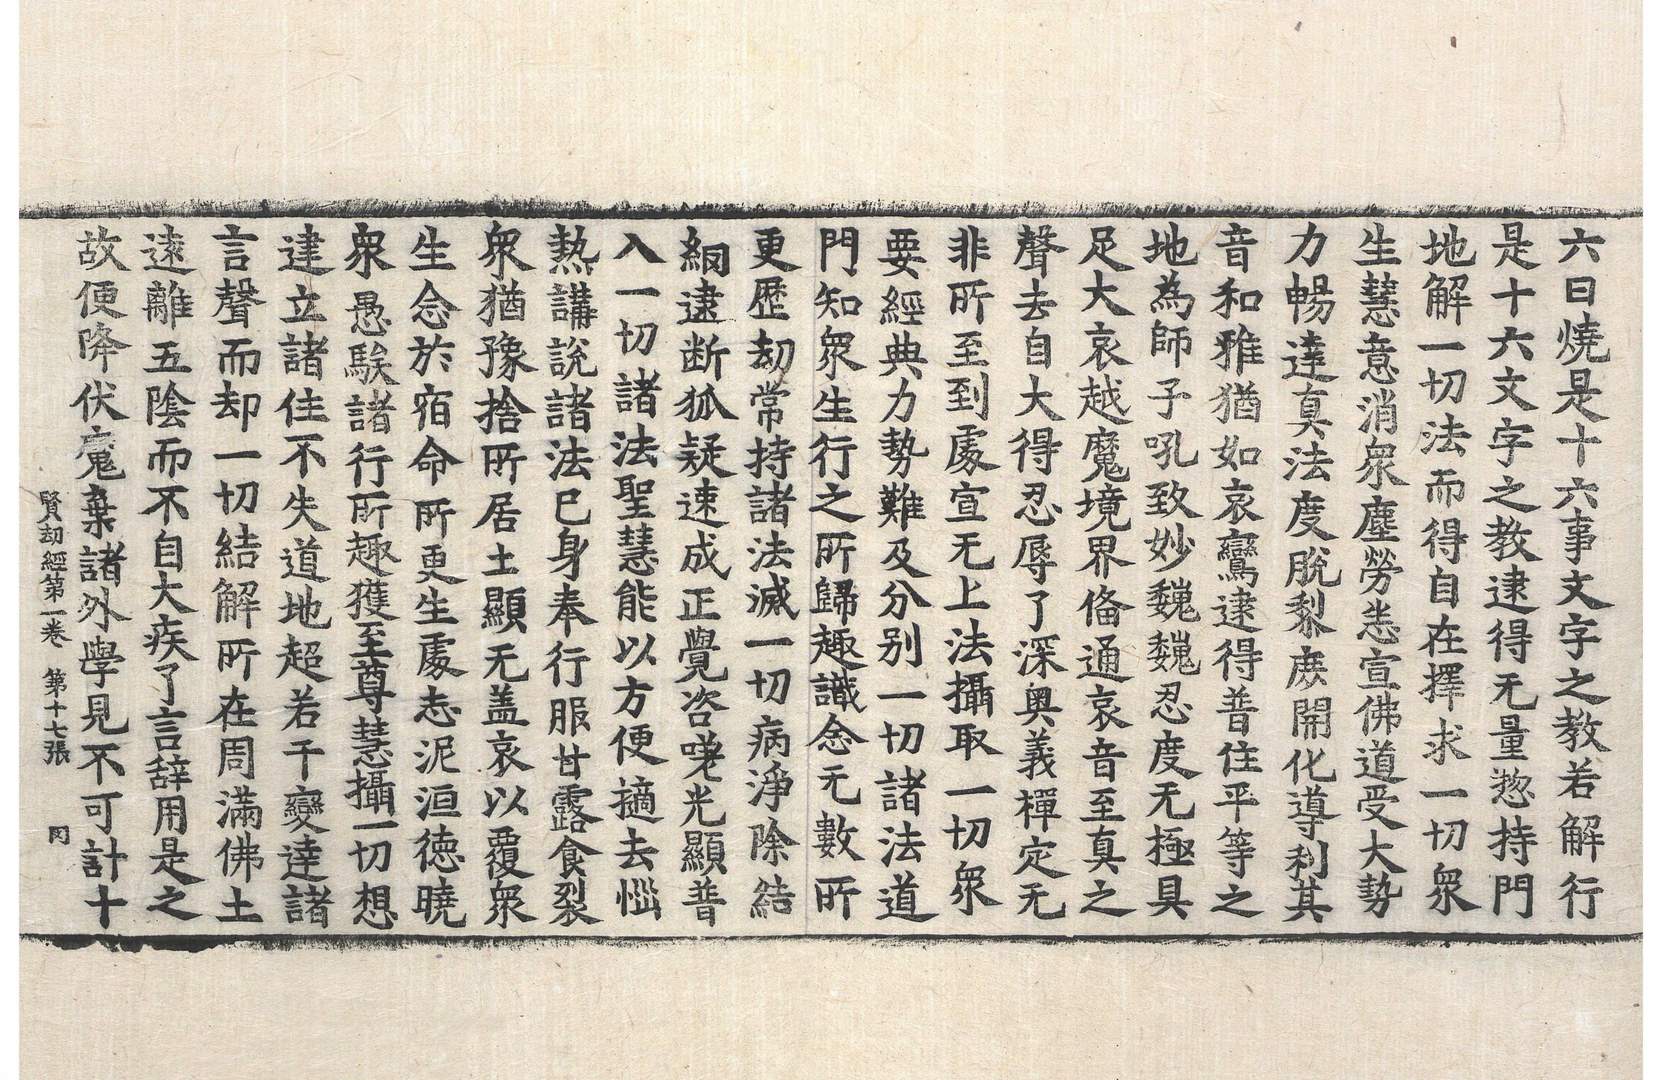 六曰燒是十六事文字之教若解行
是十六文字之教逮得无量惣持門
地解一切法而得自在擇求一切衆
生慧意消衆塵勞恙宣佛道受大勢
力暢達真法度脫黎庶開化導利其
音和雅猶如哀鸞逮得普住平等之
地為師子吼致妙巍巍忍度无極具
足大哀越魔境界俻通哀音至真之
聲去自大得忍辱了深奥義禪定无
非所至到處宣无上法攝取一切衆
要經典力勢難及分別一切諸法道
門知衆生行之所歸趣識念无數所
更歷劫常持諸法滅一切病淨除結
網逮断狐疑速成正覺咨嗟光顯普
入一切諸法聖慧能以方便擿去惱
熱講說諸法已身奉行服甘露食裂
衆猶豫捨所居土顯无盖哀以覆衆
生念於宿命所更生處志泥洹德曉
衆愚騃諸行所趣獲至尊慧攝一切想
建立諸住不失道地超若干變逹諸
言聲而却一切結解所在周滿佛土
遠離五陰而不自大疾了言辭用是之
故便降伏魔棄諸外學見不可計十
賢劫經第一卷 第十七張 罔